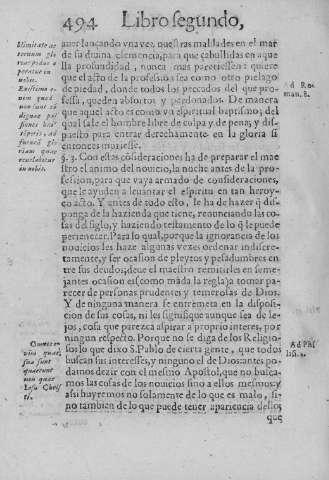 494 Libro segundo,
auer lançando vna vez nuestras maldades en el mar
de su diuina clemencia, para que çabullidas en aque
lla profundidad, nunca mas pareciessen: quiere
que el acto de la professiõ sea como otro pielago
de piedad, donde todos los peccados del que pro-
fessa, queden absortos y perdonados. De manera
que aquel acto es como vn spiritual baptismo; del
qual sale el hombre libre de culpa y de pena; y dis-
puesto para entrar derechamente en la gloria si
entonces muriesse.
§. 3. Con estas cõsideraciones ha de preparar el mae
stro el animo del nouicio, la noche antes de la pro-
fession, para que vaya armado de consideraciones,
que le ayuden a leuantar el espiritu en tan heroy-
co acto. Y antes de todo esto, le ha de hazer q̃ dispon
ga de la hazienda que tiene, renunciando las co-
sas del siglo, y haziendo testamento de lo q̃ le puede
pertenecer. Para lo qual, porque la ignorancia de los
nouicios les haze algunas vezes ordenar indiscre-
tamente, y ser ocasion de pleytos y pesadumbres en
tre sus deudos; deue el maestro remitirles en seme-
jantes ocasiones (como mãda la regla) a tomar pa-
recer de personas prudentes y temerosas de Dios.
Y de ninguna manera se entremeta en la disposi-
cion de sus cosas, ni les signifique aunque sea de le-
jos, cosa que parezca aspirar a proprio interes, por
ningun respecto. Porque no se diga de los Religio-
sos lo que dixo S. Pablo de cierta gente, que todos
buscan sus interesses, y ninguno el de Dios: antes po
damos dezir con el mesmo Apostol, que no busca-
mos las cosas de los nouicios sino a ellos mesmos; y
assi huyremos no solamente de lo que es malo, si-
no tambien de lo que puede tener apariencia dello;
que
Ad Ro-
man. 8.
Omnes e-
nim quae
sua sunt
quaerunt
non quae
Iesu Chri-
sti.
Ad Phi
lip. 2.